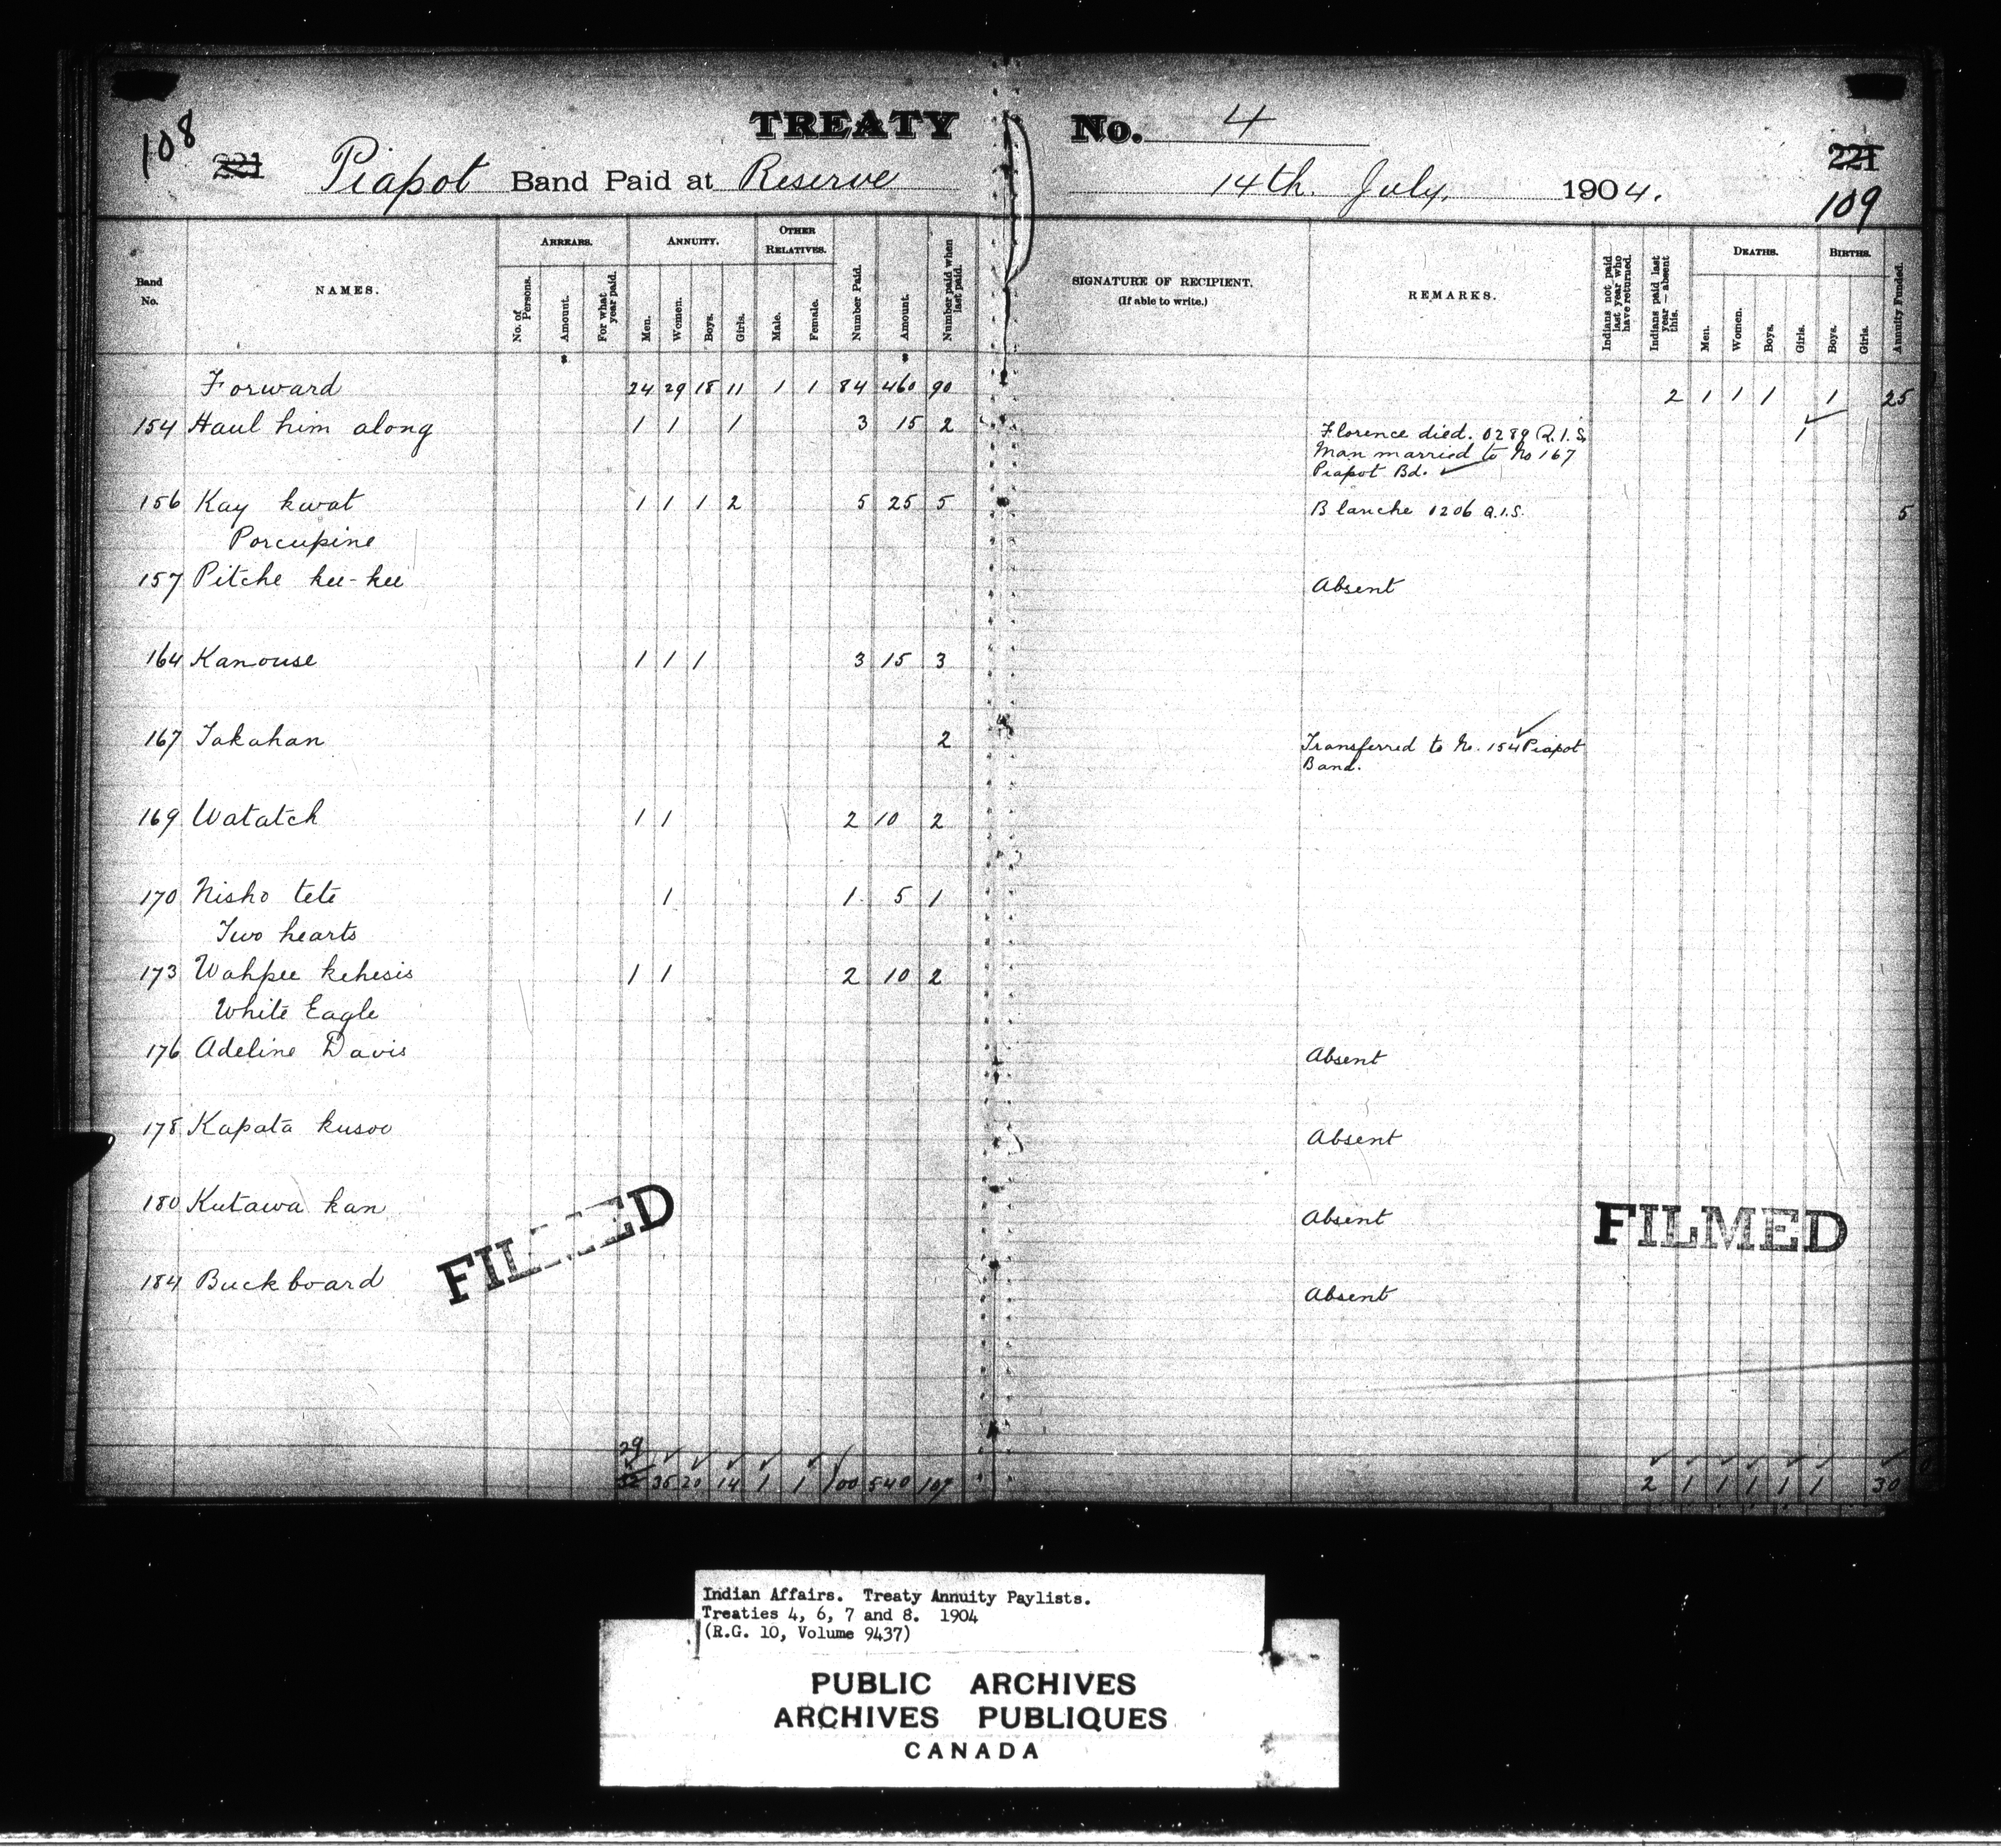 108
TREATY No. 4
221 Piapot Band Paid at Reserve 14th. July, 1904. 221
109
Band No. NAMES. ARREARS. No. of Persons. Amount. For what year paid. ANNUITY. Men. Women. Boys. Girls. OTHER RELATIVES. Male. Female. Number Paid. Amount. Number paid when last paid. SIGNATURE OF RECIPIENT. (If able to write.) REMARKS. Indians not paid last year who have returned. Indians paid last year — absent this. DEATHS. Men. Women. Boys. Girls. BIRTHS. Boys. Girls. Annuity Funded.
Forward 24 29 18 11 1 1 84 460 90 2 1 1 1 1 25
154 Haul him along 1 1 1 3 15 2 Florence died. 0289 Q.I.S. 1
Man married to No 167
Piapot Bd.
156 Kay kwat 1 1 1 2 5 25 5 Blanche 1206 Q.I.S. 5
Porcupine
157 Pitche kee-kee Absent
164 Kanouse 1 1 1 3 15 3
167 Takahan 2 Transferred to No. 154 Piapot
Band.
169 Watatch 1 1 2 10 2
170 Nisho tete 1 1 5 1
Two hearts
173 Wahpee kehesis 1 1 2 10 2
White Eagle
176 Adeline Davis Absent
178 Kapata kusoo Absent
180 Kutawa kan Absent
FILMED FILMED
184 Buckboard Absent
29
32 35 20 14 1 1 100 540 107 2 1 1 1 1 1 30
Indian Affairs. Treaty Annuity Paylists.
Treaties 4, 6, 7 and 8. 1904
(R.G. 10, Volume 9437)
PUBLIC ARCHIVES
ARCHIVES PUBLIQUES
CANADA